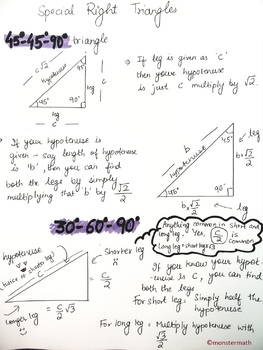 Special Right Triangles
45°-45°-90° triangle
c√2
hypotenuse
45°
45°
90°
leg
c
leg
c
⇒ If leg is given as 'c'
then your hypotenuse
is just c multiply by √2.
⇒ If your hypotenuse is
given - say length of hypotenuse
is 'b', then you can find
both the legs by simply
multiplying that 'b' by √2/2
b
hypotenuse
45°
45°
90°
leg
b×√2/2
b×√2/2
leg
30°-60°-90°
Anything common in short and
long leg. Yes, c/2 is
common
Long leg = short leg×√3
hypotenuse
c
twice of shorter leg
Shorter leg
= c/2
Longer leg
= c/2 √3
If you know your hypot-
-enuse is c, you can find
both the legs.
For short leg: Simply half the
hypotenuse
For long leg = Multiply hypotenuse with
√3/2
@monstermath